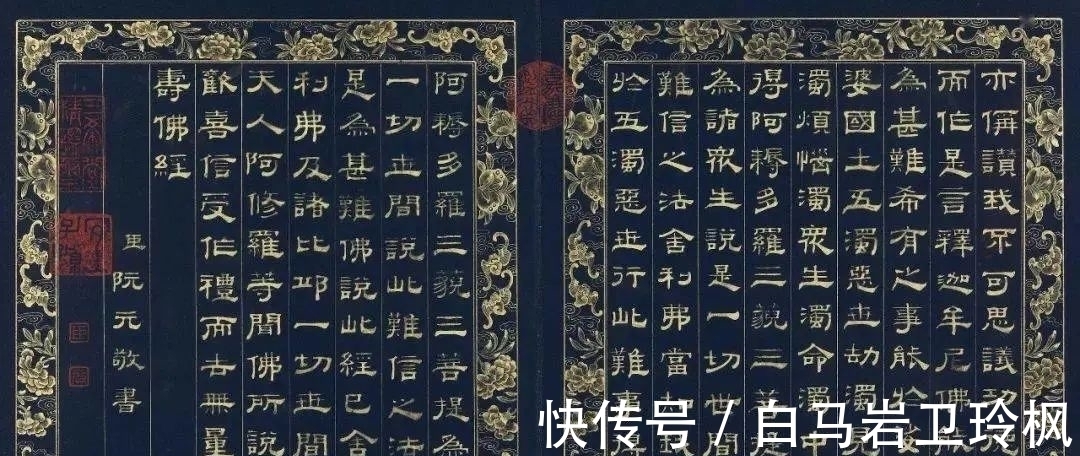 亦偁讚我不可思議功
而作是言釋迦牟尼佛
為甚難希有之事能於娑
婆國土五濁惡世劫濁見
濁煩惱濁眾生濁命濁中
得阿耨多羅三藐三菩提
為諸眾生說是一切世間
難信之法舍利弗當知
於五濁惡世行此難事得
阿耨多羅三藐三菩提為
一切世間說此難信之法
是為甚難佛說此經已舍
利弗及諸比邱一切世間
天人阿修羅等聞佛所說
歡喜信受作禮而去無量
壽佛經
臣阮元敬書
快传号 / 白马岩卫玲枫